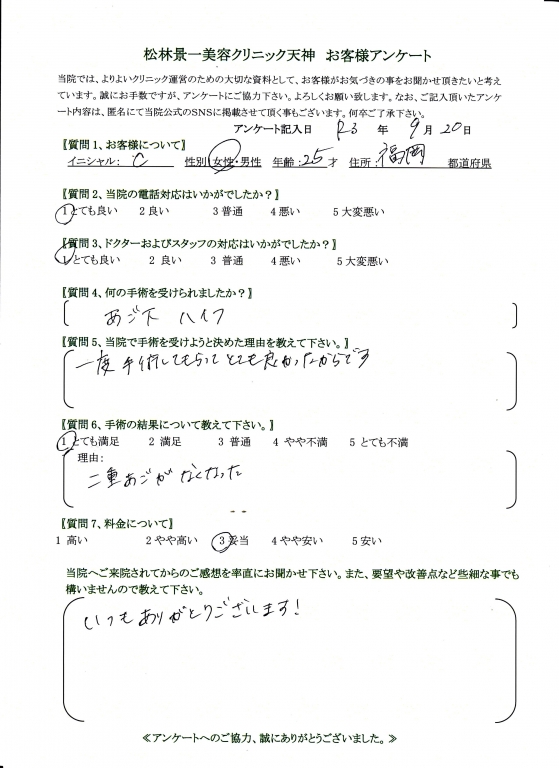 松林景一美容クリニック天神 お客様アンケート
当院では、よりよいクリニック運営のための大切な資料として、お客様がお気づきの事をお聞かせ頂きたいと考え
ています。誠にお手数ですが、アンケートにご協力下さい。よろしくお願い致します。なお、ご記入頂いたアンケ
ート内容は、匿名にて当院公式のSNSに掲載させて頂く事もございます。何卒ご了承下さい。
アンケート記入日 R3 年 9月 20日
【質問1、お客様について】
イニシャル: C 性別 女性・男性 年齢:25才 住所: 福岡 都道府県
【質問2、当院の電話対応はいかがでしたか?】
1とても良い 2良い 3普通 4悪い 5大変悪い
【質問3、ドクターおよびスタッフの対応はいかがでしたか?】
1とても良い 2 良い 3 普通 4悪い 5大変悪い
【質問4、何の手術を受けられましたか?】
あご下 ハイフ
【質問5、当院で手術を受けようと決めた理由を教えて下さい。】
一度手術してもらってとても良かったからです
【質問6、手術の結果について教えて下さい。】
1 とても満足 2 満足 3 普通 4 やや不満 5 とても不満
理由:
二重あごがなくなった
【質問7、料金について】
1 高い 2やや高い 3妥当 4やや安い 5安い
当院へご来院されてからのご感想を率直にお聞かせ下さい。また、要望や改善点など些細な事でも
構いませんので教えて下さい。
いつもありがとうございます!
≪アンケートへのご協力、誠にありがとうございました。≫